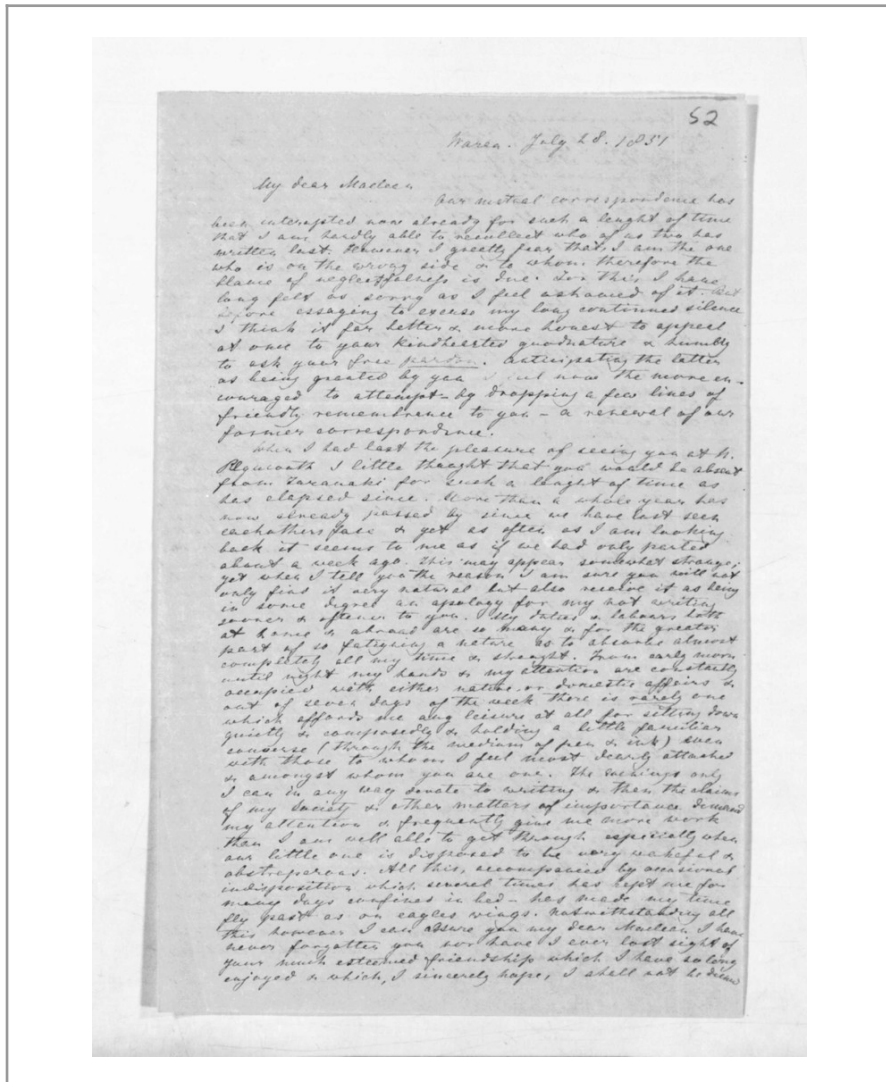 52
Waren. July 28. 1851
My dear Maclean
Our mutual correspondence has
been interepted now already for such a lenght of time
that I am hardly able to recollect who of us two has
written last. However I greatly fear that I am the one
who is on the wrong side & to whom therefore the
blame of neglectfulness is due. For this I have
long felt as sorry as I feel ashamed of it. But
before essaying to excuse my long continued silence
I think it far better & more honest to appeal
at once to your kindhearted goodnature & humbly
to ask your free pardon. Anticipating the latter
as being granted by you I feel now the more en-
couraged to attempt - by dropping a few lines of
friendly remembrance to you - a renewal of our
former correspondence.
When I had last the pleasure of seeing you at N.
Plymouth I little thought that you would be absent
from Taranaki for such a lenght of time as
has elapsed since. More than a whole year has
now already passed by since we have last seen
eachothers face & yet as often as I am looking
back it seems to me as if we had only parted
about a week ago. This may appear somewhat strange;
yet when I tell you the reason I am sure you will not
only find it very natural but also receive it as being
in some degree an apology for my not writing
sooner & oftener to you. My duties & labours both
at home & abroad are so many & for the greater
part of so fatiguing a nature as to absorb almost
completely all my time & strenght. From early morn
until night my hands & my attention are constantly
occupied with either native or domestic affairs &
out of seven days of the week there is rarely one
which affords me any leisure at all for sitting down
quietly & composedly & holding a little familiar
converse (through the medium of pen & ink) even
with those to whom I feel most dearly attached
& amongst whom you are one. The evenings only
I can in any way devote to writing & then the claims
of my Society & other matters of importance demand
my attention & frequently give me more work
than I am well able to get through especially when
our little one is disposed to be very wakeful &
obstroperous. All this, accompanied by occasional
indisposition which several times has kept me for
many days confined in bed - has made my time
fly past as on eagles wings. Notwithstanding all
this however I can assure you my dear Maclean I have
never forgotten you nor have I ever lost sight of
your much esteemed friendship which I have so long
enjoyed & which, I sincerely hope, I shall not be